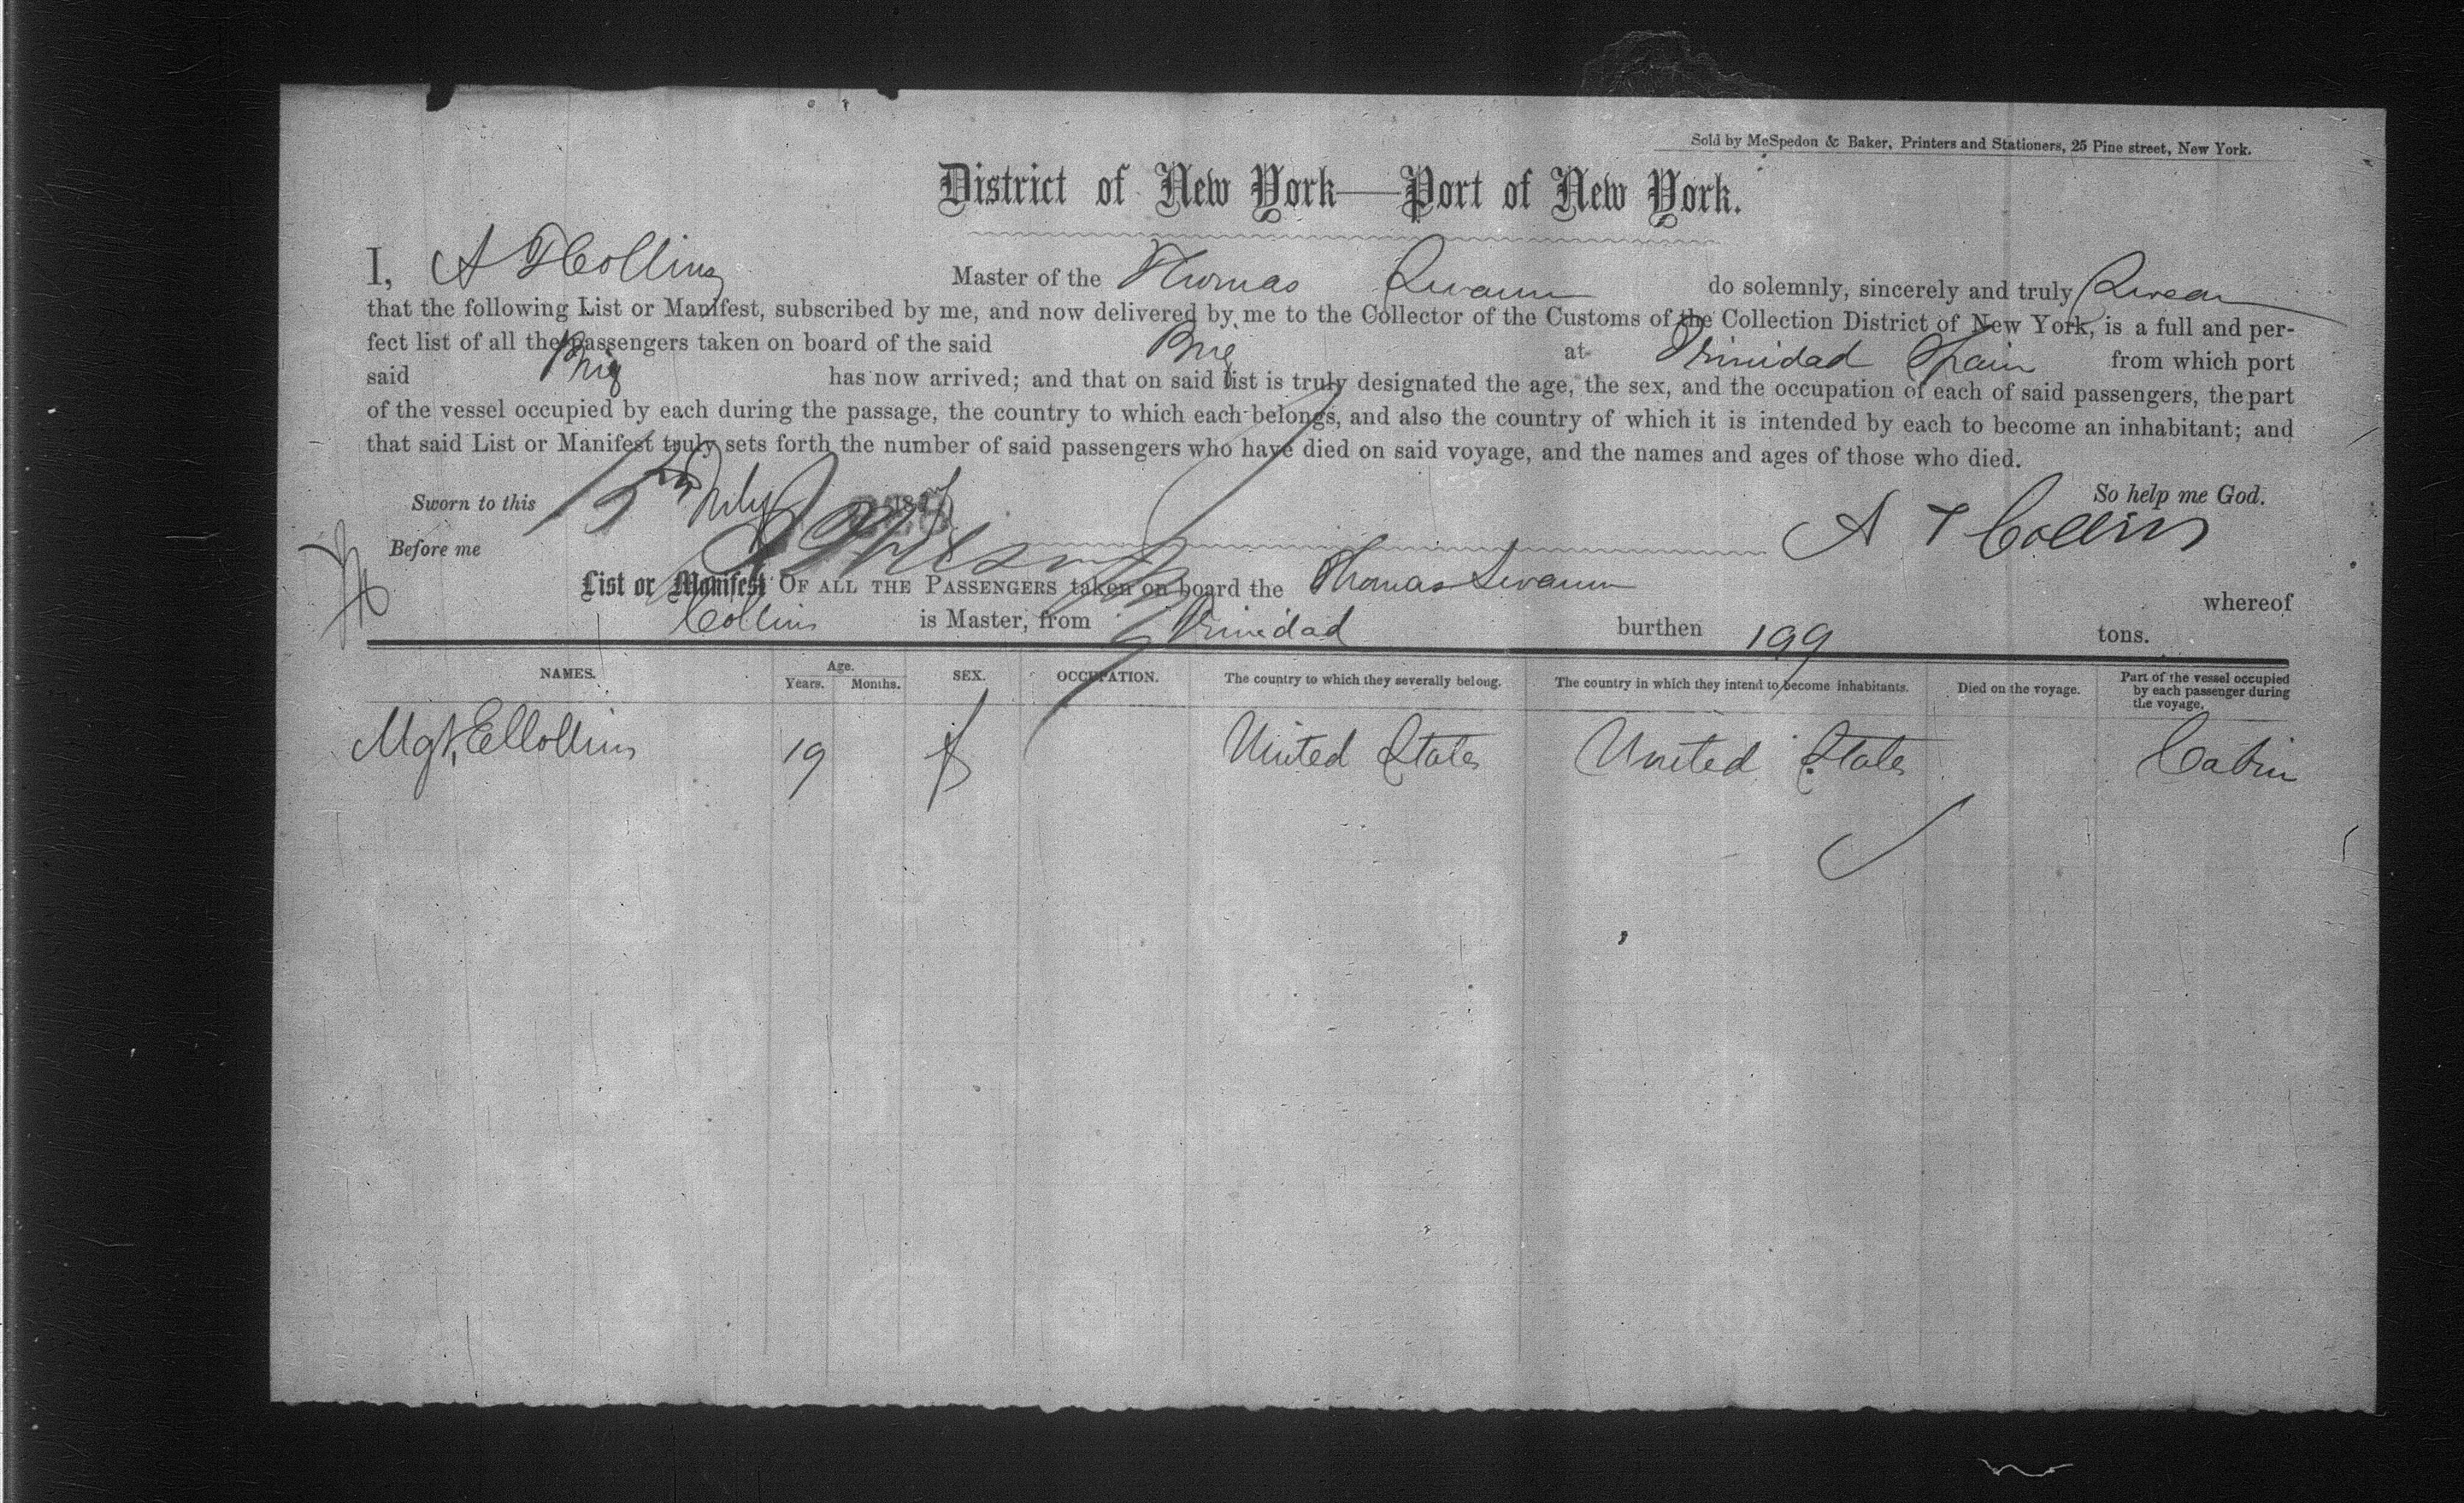 Sold by McSpedon & Baker, Printers and Stationers, 25 Pine street, New York.
District of New York—Port of New York.
I, A T Collins Master of the Thomas Swann do solemnly, sincerely and truly Swear
that the following List or Manifest, subscribed by me, and now delivered by me to the Collector of the Customs of the Collection District of New York, is a full and per-
fect list of all the passengers taken on board of the said Brig at Trinidad Spain from which port
said Brig has now arrived; and that on said list is truly designated the age, the sex, and the occupation of each of said passengers, the part
of the vessel occupied by each during the passage, the country to which each belongs, and also the country of which it is intended by each to become an inhabitant; and
that said List or Manifest truly sets forth the number of said passengers who have died on said voyage, and the names and ages of those who died.
So help me God.
Sworn to this 15th July 185
A T Collins
Before me
List or Manifest OF ALL THE PASSENGERS taken on board the Thomas Swann whereof
Collins is Master, from Trinidad burthen 199 tons.
NAMES. Age. Years. Months. SEX. OCCUPATION. The country to which they severally belong. The country in which they intend to become inhabitants. Died on the voyage. Part of the vessel occupied by each passenger during the voyage.
Mgt. E Collins 19 f United States United States Cabin